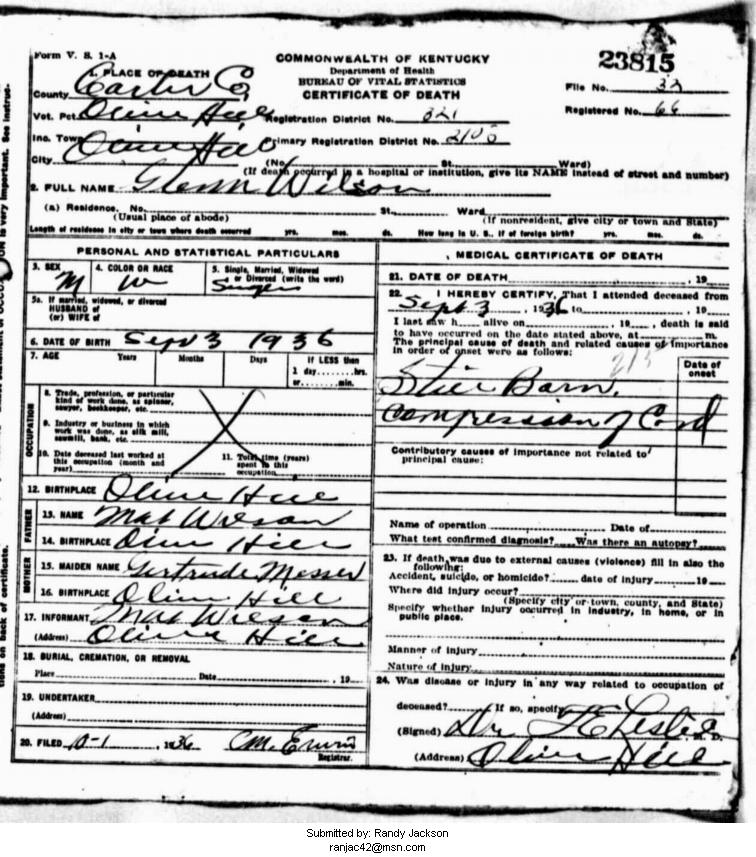 Form V. S. 1-A
COMMONWEALTH OF KENTUCKY
Department of Health
BUREAU OF VITAL STATISTICS
CERTIFICATE OF DEATH
23815
File No. 32
Registered No. 66
1. PLACE OF DEATH
County Carter Co
Vot. Pct. Olive Hill Registration District No. 321
Inc. Town Olive Hill Primary Registration District No. 2105
City (No. St. Ward)
(If death occurred in a hospital or institution, give its NAME instead of street and number)
2. FULL NAME Glenn Wilson
(a) Residence. No. St., Ward
(Usual place of abode) (If nonresident, give city or town and State)
Length of residence in city or town where death occurred yrs. mos. ds. How long in U. S., if of foreign birth? yrs. mos. ds.
PERSONAL AND STATISTICAL PARTICULARS
3. SEX M
4. COLOR OR RACE W
5. Single, Married, Widowed or Divorced (write the word)
5a. If married, widowed, or divorced
HUSBAND of
(or) WIFE of
6. DATE OF BIRTH Sept 3 1936
7. AGE Years Months Days If LESS than
1 day hrs.
or min.
OCCUPATION
8. Trade, profession, or particular
kind of work done, as spinner,
sawyer, bookkeeper, etc.
9. Industry or business in which
work was done, as silk mill,
sawmill, bank, etc.
10. Date deceased last worked at
this occupation (month and
year)
11. Total time (years)
spent in this
occupation
12. BIRTHPLACE Olive Hill
FATHER
13. NAME Mat Wilson
14. BIRTHPLACE Olive Hill
MOTHER
15. MAIDEN NAME Gertrude Messer
16. BIRTHPLACE Olive Hill
17. INFORMANT Mat Wilson
(Address) Olive Hill
18. BURIAL, CREMATION, OR REMOVAL
Place Date , 19
19. UNDERTAKER
(Address)
20. FILED 10-1, 1936 C M. Erwin
Registrar.
MEDICAL CERTIFICATE OF DEATH
21. DATE OF DEATH , 19
22. I HEREBY CERTIFY, That I attended deceased from
Sept 3, 1936 to , 19
I last saw h alive on , 19 , death is said
to have occurred on the date stated above, at m.
The principal cause of death and related causes of importance
in order of onset were as follows:
Date of
onset
Still Born.
Compression of Cord
Contributory causes of importance not related to
principal cause:
Name of operation Date of
What test confirmed diagnosis? Was there an autopsy?
23. If death was due to external causes (violence) fill in also the
following:
Accident, suicide, or homicide? date of injury 19
Where did injury occur?
(Specify city or town, county, and State)
Specify whether injury occurred in industry, in home, or in
public place.
Manner of injury
Nature of injury
24. Was disease or injury in any way related to occupation of
deceased? If so, specify
(Signed) Dr J E Leslie M.D.
(Address) Olive Hill
tions on back of certificate.
Submitted by: Randy Jackson
ranjac42@msn.com